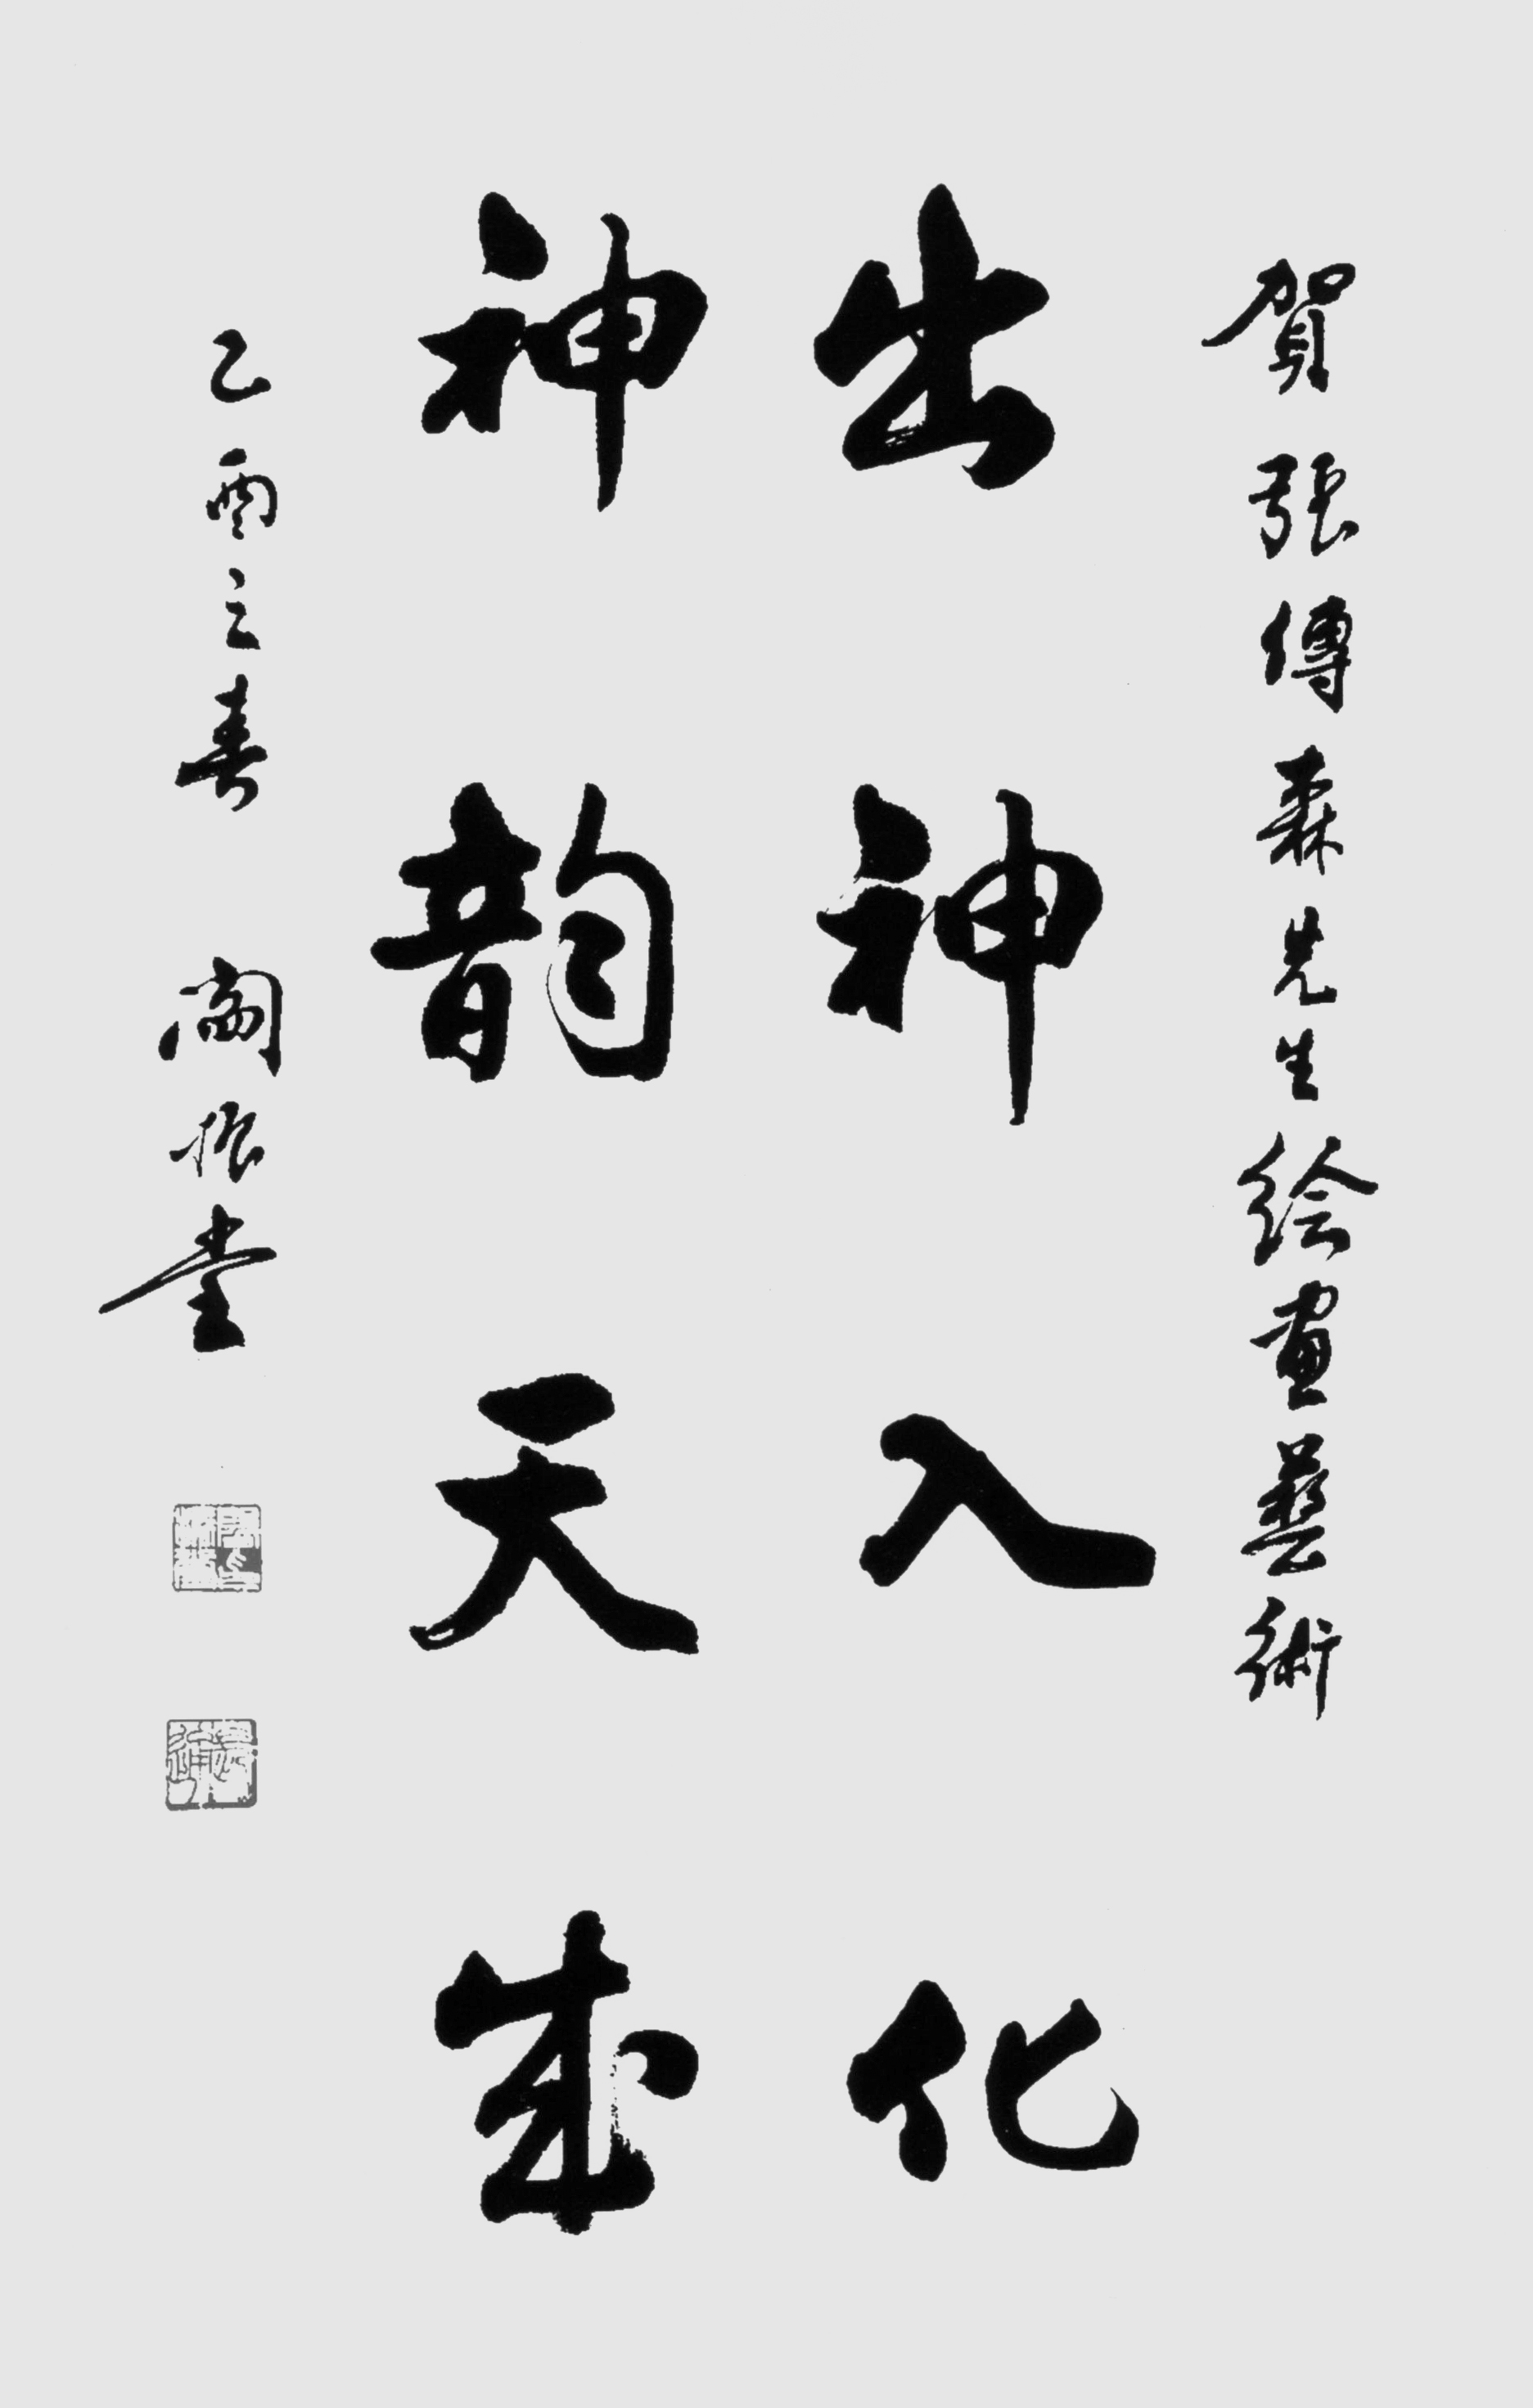 賀張傳森先生绘畫藝術
出神入化
神韵天成
乙酉之春 阚振堂